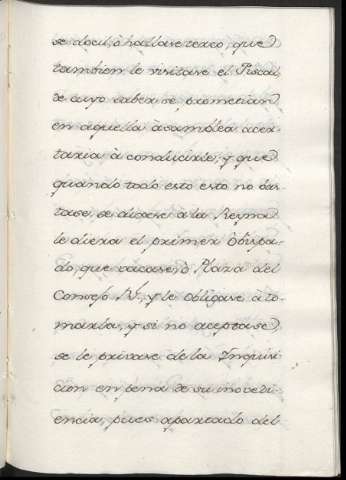 se docil, ò hallase terco, que
tambien le visitase el Fiscal
de cuyo saber se prometian
en aquella àsamblea acer-
taria à conducirle, y que
quando todo esto esto no bas-
tase, se dixese à la Reyna
le diera el primer Obispa-
do, que vacase, ò Plaza del
Consejo Rl. y le obligase à to-
marla, y si no aceptase
se le privase de la Inquisi
cion en pena de su inovedi-
encia, pues apartado del